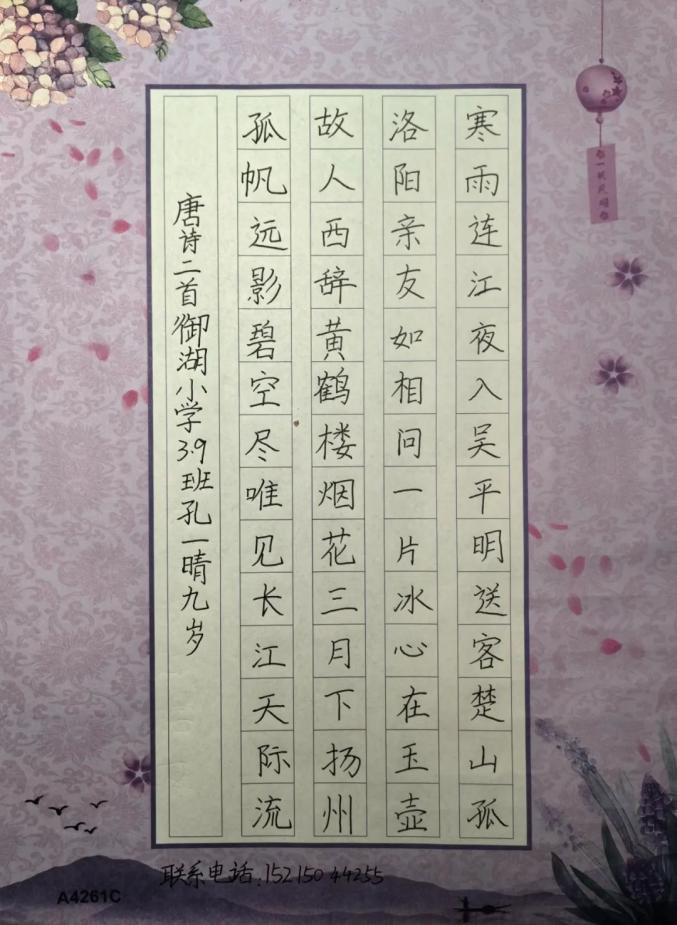 寒雨连江夜入吴平明送客楚山孤
洛阳亲友如相问一片冰心在玉壶
故人西辞黄鹤楼烟花三月下扬州
孤帆远影碧空尽唯见长江天际流
唐诗二首御湖小学3.9班孔一晴九岁
联系电话:15215044255
A4261C